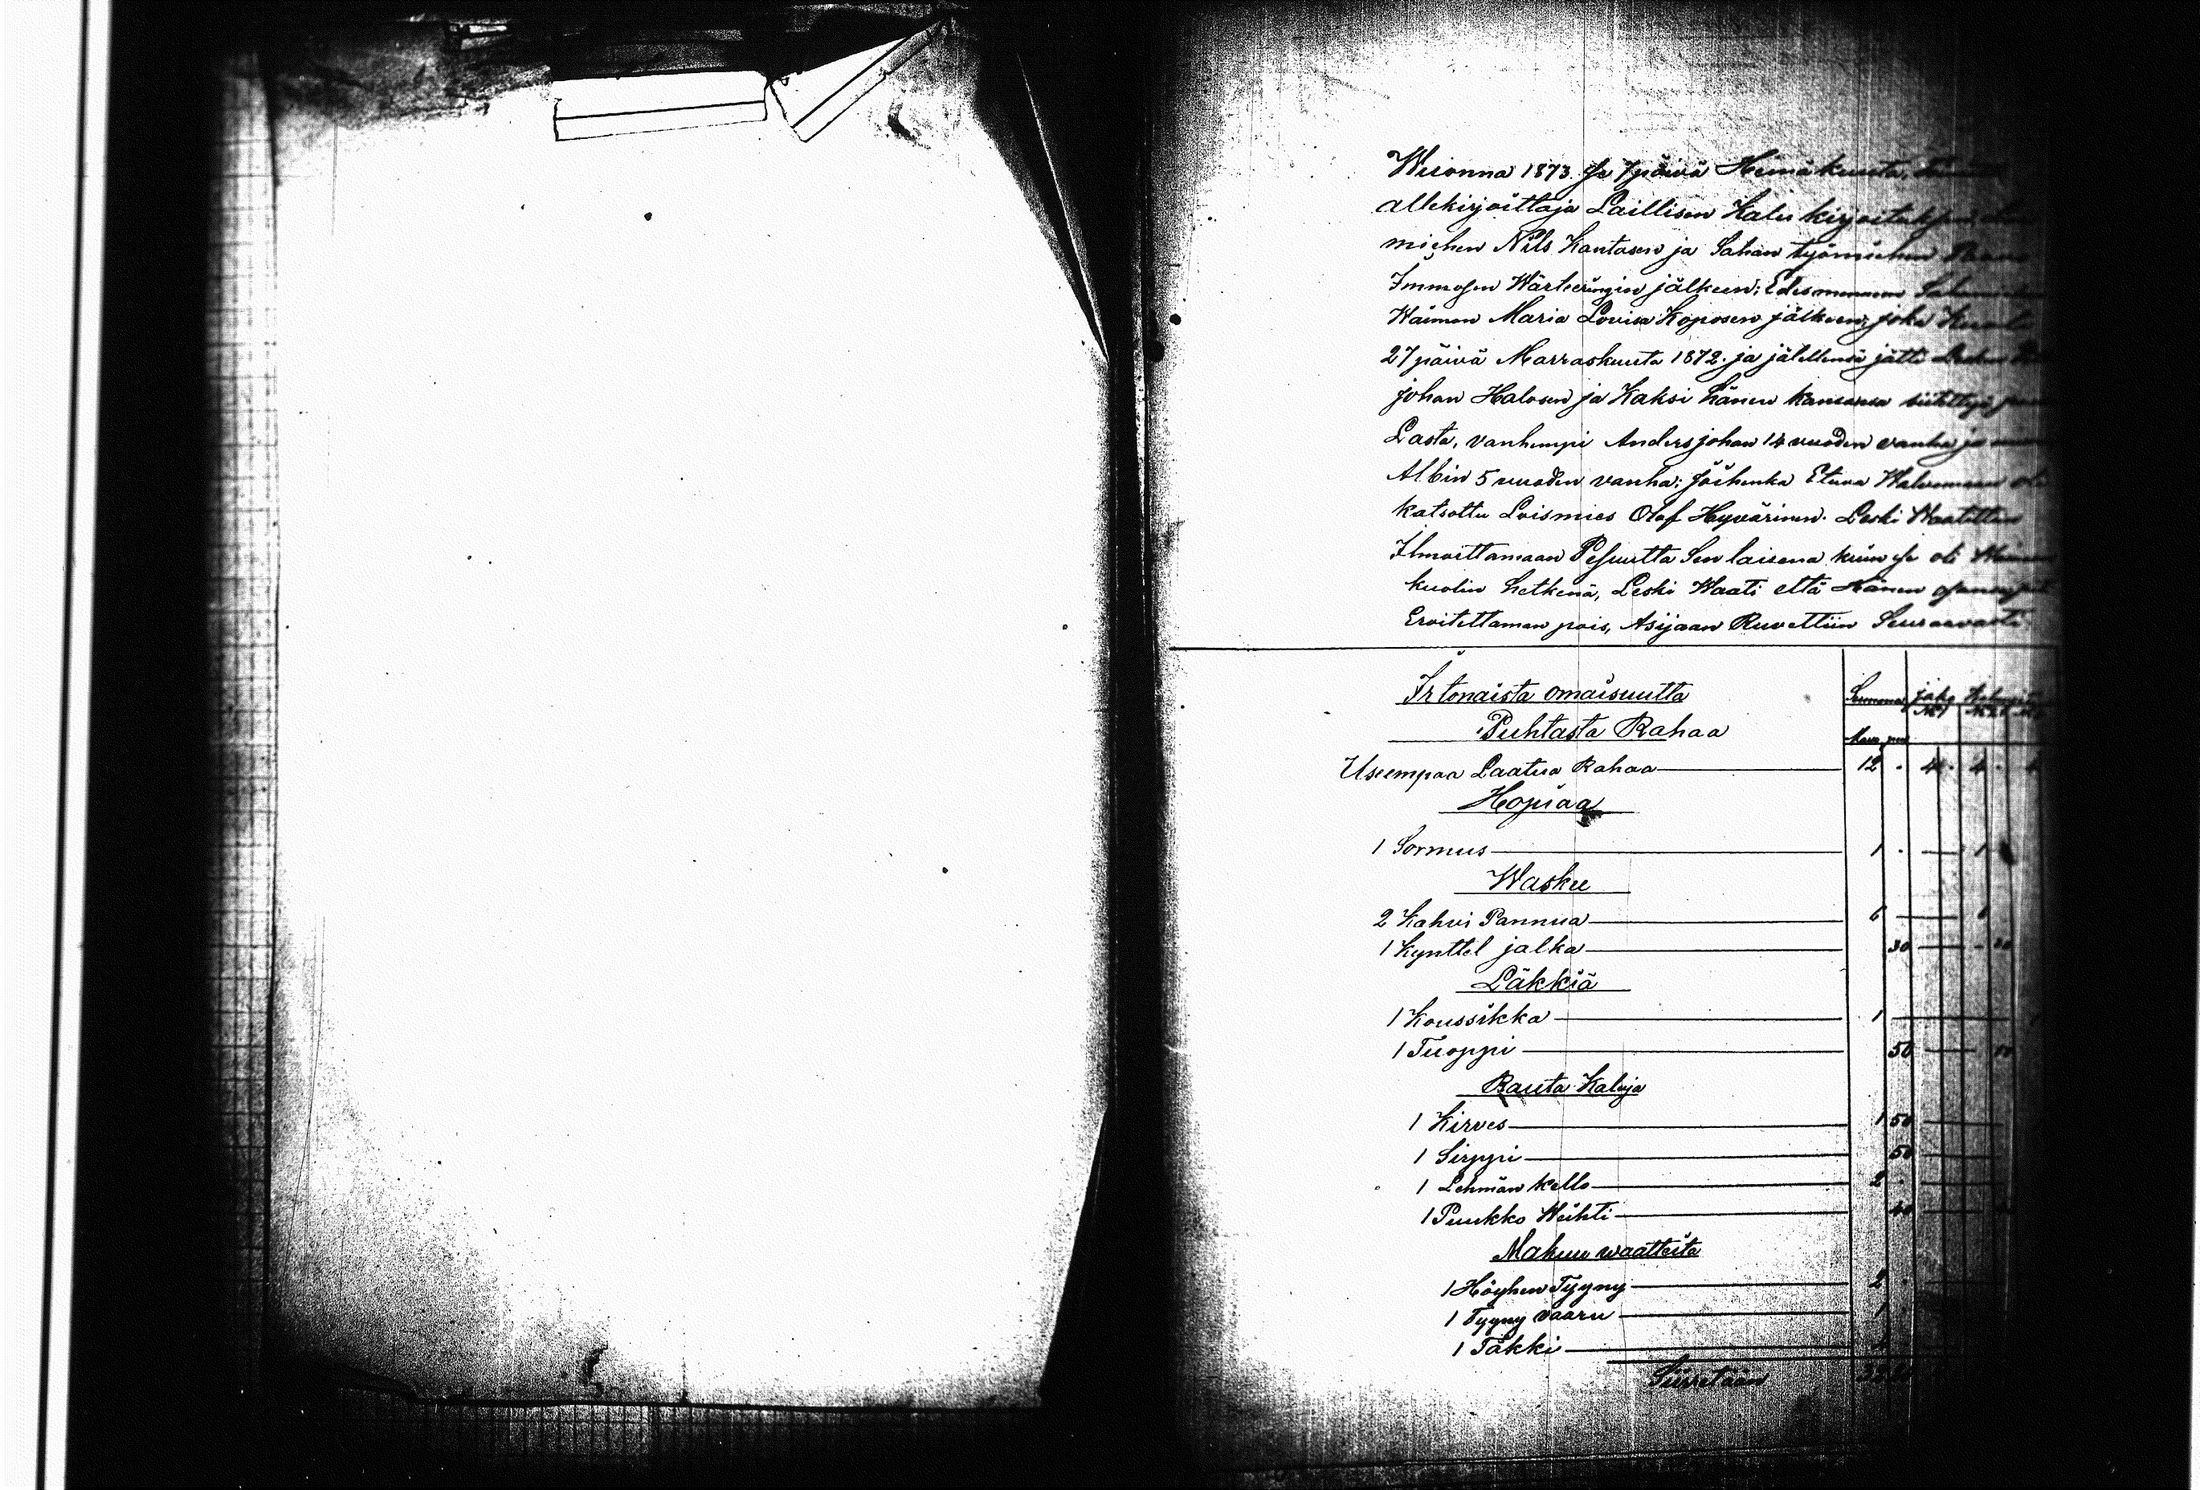 Wuonna 1873 se 7 päivä Heinäkuuta,
allekirjoittaja Laillisen Kalu kirjoituksen
miehen Nils Kantasen ja Sahan työmiehen
Immosen Wärteeringin jälkeen; Edesmenneen
Waimon Maria Lovisa Koposen jälkeen, joka
27 päivä Marraskuuta 1872. ja jälellensä jätti Lesken
Johan Halosen ja Kaksi hänen kanssansa siitettyä
Lasta, vanhempi Anders johan 14 vuoden vanha ja
Albin 5 vuoden vanha; joihenka Etuva Walvomaan oli
katsottu Loismies Olof Hyvärinen. Leski Waatittiin
Ilmoittamaan Pesuutta Sen laisena kuin se oli
kuolin hetkenä, Leski Waati että Hänen
Eroitettaman pois, Asijaan Ruvettiin Seuraavasti
Irtonaista omaisuutta Summa jako
Puhtasta Rahaa
Useempaa Laatua Rahaa 12 . 4 . 4 . 4
Hopiaa
1 Sormus 1 . 1
Waskee
2 Kahvi Pannua 6 6
1 Kynttel jalka 30 30
Läkkiä
1 Koussikka 1
1 Tuoppi 50 50
Rauta Kaluja
1 Kirves 1 50
1 Sirppi 50
1 Lehmän kello 2 .
1 Puukko Weihti 40
Makuu waatteita
1 Höyhen Tyyny 2 .
1 Tyyny vaaru 1 .
1 Täkki
Siirretään